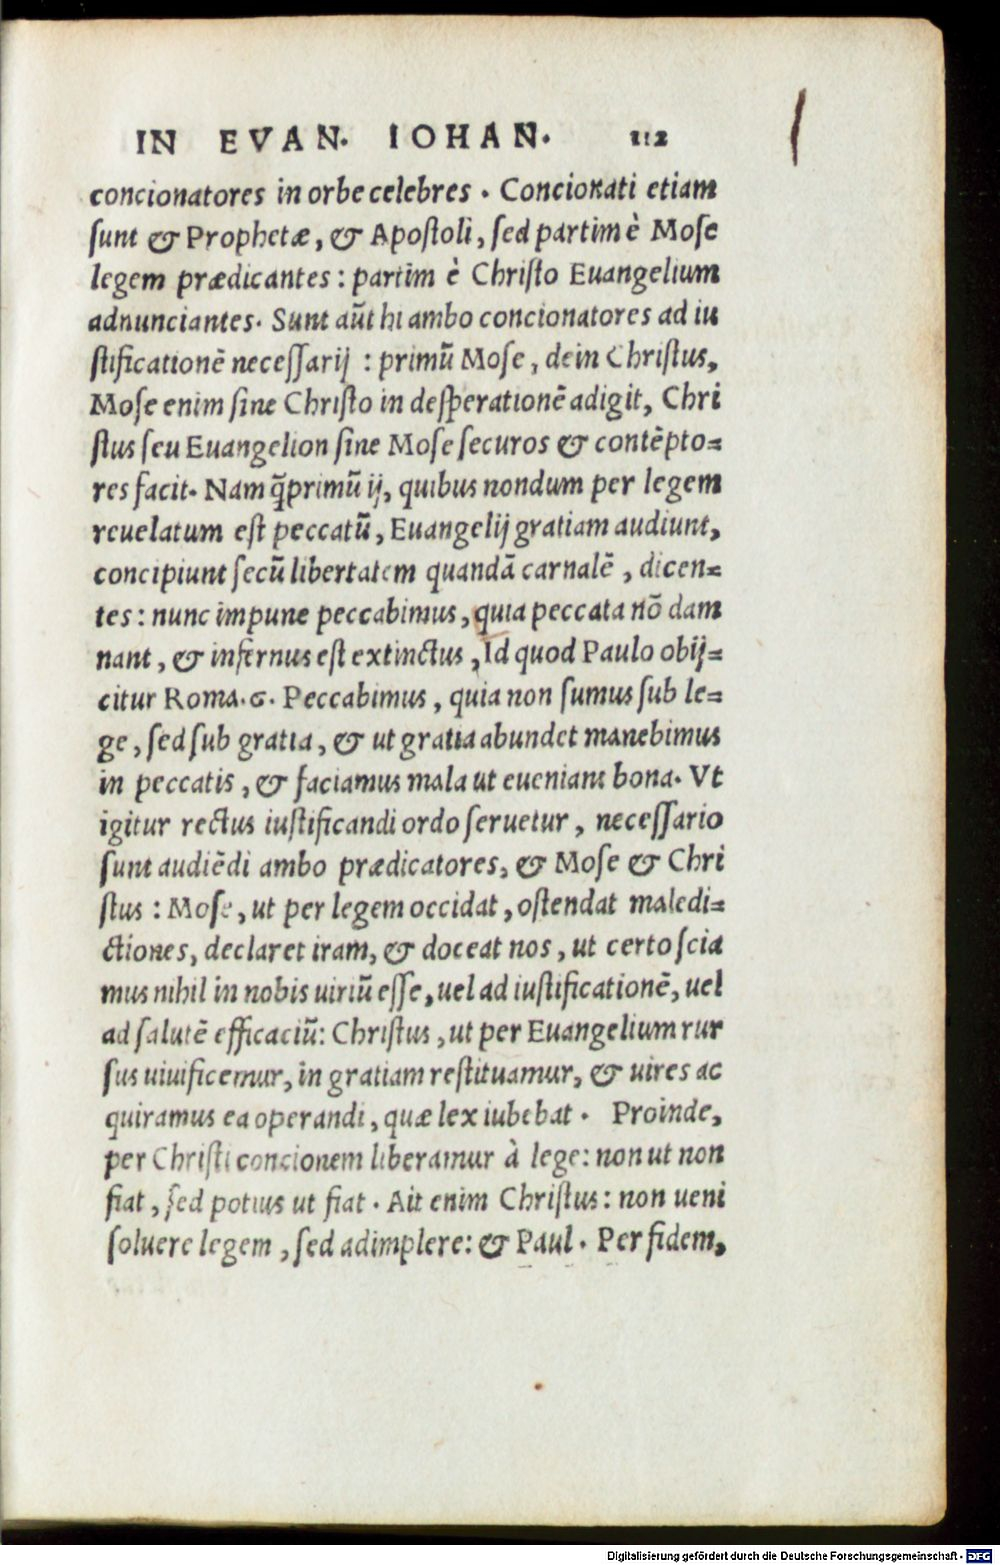 IN EVAN. IOHAN. 112
concionatores in orbe celebres . Concionati etiam
ſunt & Prophetæ, & Apoſtoli, ſed partim è Moſe
legem prædicantes : partim è Chriſto Euangelium
adnunciantes. Sunt aūt hi ambo concionatores ad iu
ſtificationē neceſſarij : primū Moſe, dein Chriſtus,
Moſe enim ſine Chriſto in deſperationē adigit, Chri
ſtus ſeu Euangelion ſine Moſe ſecuros & contēpto=
res facit. Nam q̃primū ij, quibus nondum per legem
reuelatum eſt peccatū, Euangelij gratiam audiunt,
concipiunt ſecū libertatem quandā carnalē, dicen=
tes : nunc impune peccabimus, quia peccata nō dam
nant, & infernus eſt extinctus, Id quod Paulo obij=
citur Roma.6. Peccabimus, quia non ſumus ſub le=
ge, ſed ſub gratia, & ut gratia abundet manebimus
in peccatis, & faciamus mala ut eueniant bona. Vt
igitur rectus iuſtificandi ordo ſeruetur, neceſſario
ſunt audiēdi ambo prædicatores, & Moſe & Chri
ſtus : Moſe, ut per legem occidat, oſtendat maledi=
ctiones, declaret iram, & doceat nos, ut certo ſcia
mus nihil in nobis uiriū eſſe, uel ad iuſtificationē, uel
ad ſalutē efficaciū: Chriſtus, ut per Euangelium rur
ſus uiuificemur, in gratiam reſtituamur, & uires ac
quiramus ea operandi, quæ lex iubebat . Proinde,
per Chriſti concionem liberamur à lege: non ut non
fiat, ſed potius ut fiat . Ait enim Chriſtus: non ueni
ſoluere legem, ſed adimplere: & Paul . Per fidem,
Digitalisierung gefördert durch die Deutsche Forschungsgemeinschaft - DFG